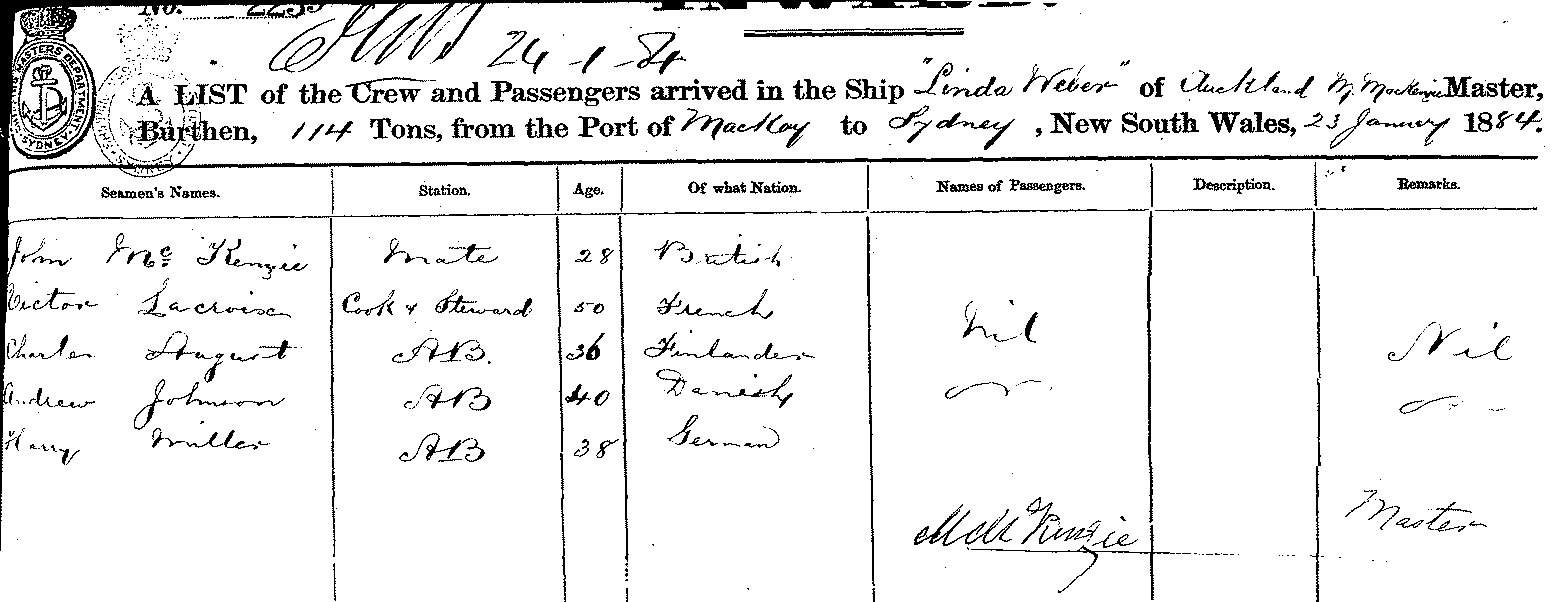 No. 2235
INWARD.
24-1-84
A LIST of the Crew and Passengers arrived in the Ship "Linda Weber" of Auckland M. MacKenzie Master,
Burthen, 114 Tons, from the Port of MacKay to Sydney, New South Wales, 23 January 1884.
Seamen's Names. Station. Age. Of what Nation. Names of Passengers. Description. Remarks.
John McKenzie Mate 28 British
Victor Lacroix Cook & Steward 50 French Nil
Charles August AB. 36 Finlander Nil
Andrew Johnson AB 40 Danish
Harry Miller AB 38 German
M McKenzie Master